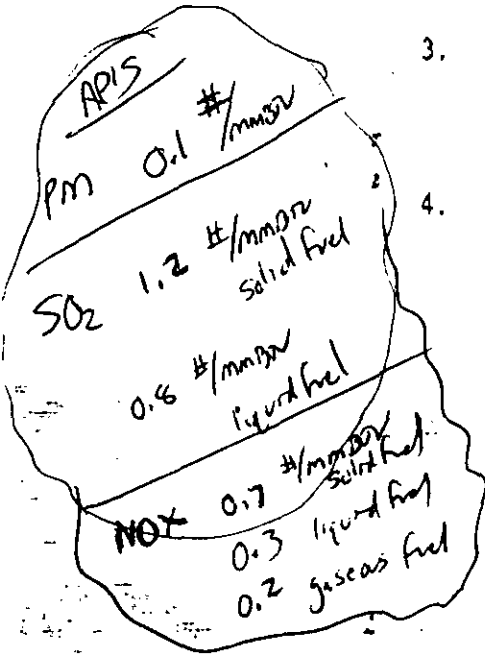 APIS
PM 0.1 #/mmBTU
SO2 1.2 #/mmBTU
solid fuel
0.8 #/mmBTU
liquid fuel
NOX 0.7 #/mmBTU
solid fuel
0.3 liquid fuel
0.2 gaseous fuel
3.
4.